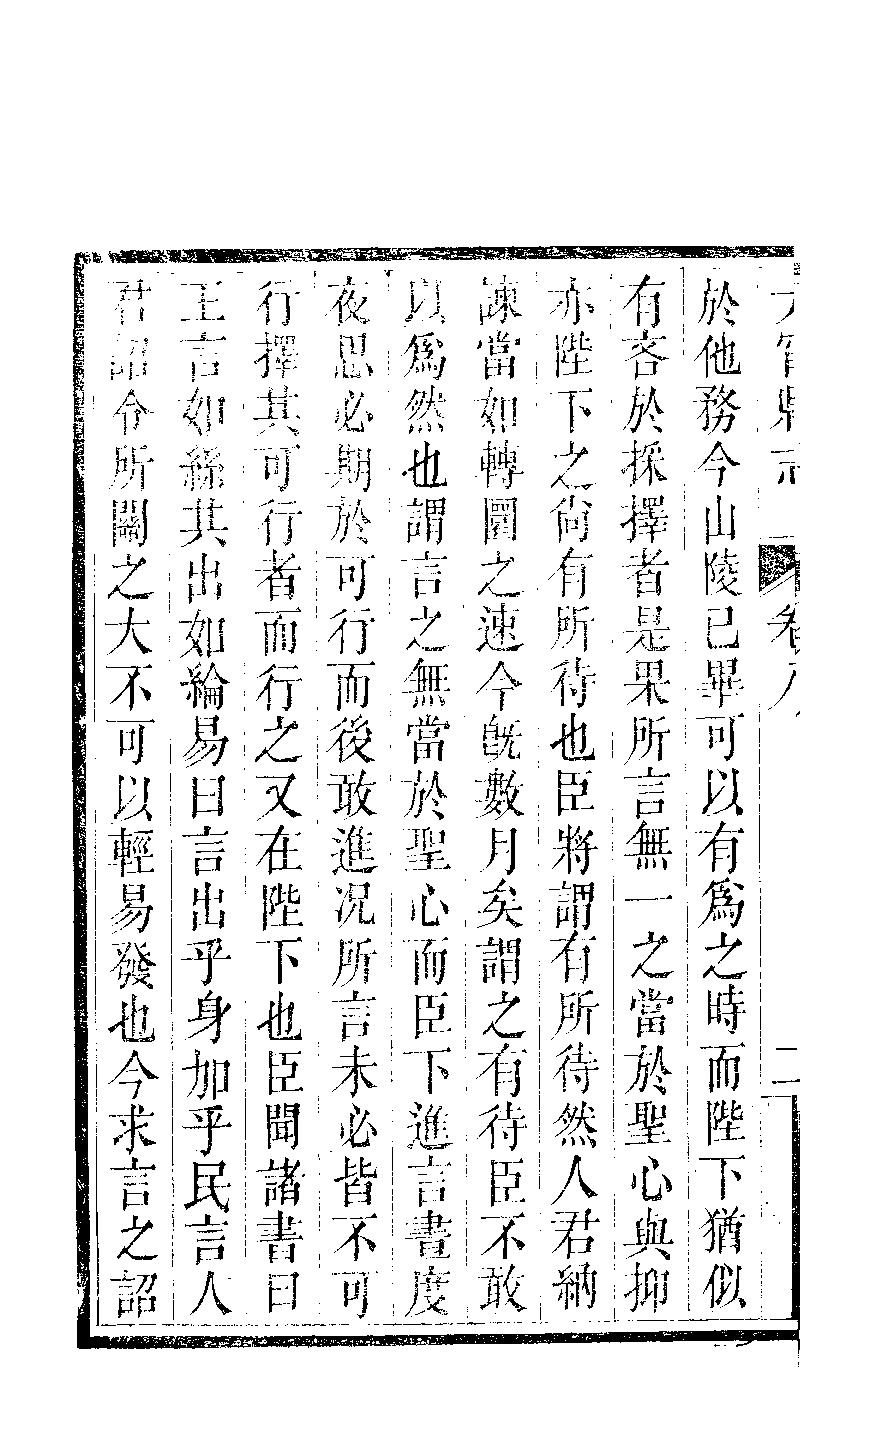 卷八
二
於他務今山陵已畢可以有爲之時而陛下猶似
有吝於採擇者是果所言無一之當於聖心與抑
亦陛下之尙有所待也臣將謂有所待然人君納
諫當如轉圜之速今旣數月矣謂之有待臣不敢
以爲然也謂言之無當於聖心而臣下進言晝度
夜思必期於可行而後敢進况所言未必皆不可
行擇其可行者而行之又在陛下也臣聞諸書曰
王言如絲其出如綸易曰言出乎身加乎民言人
君詔令所關之大不可以輕易發也今求言之詔